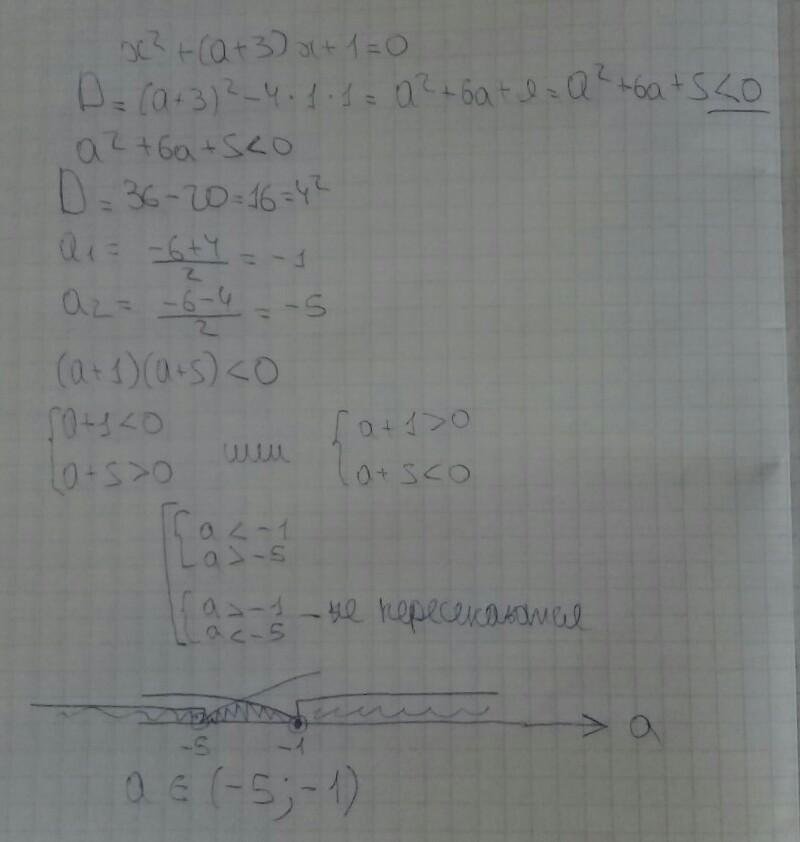 x² + (a+3)x + 1 = 0
D = (a+3)² - 4·1·1 = a² + 6a + 9 = a² + 6a + 5 < 0
a² + 6a + 5 < 0
D = 36 - 20 = 16 = 4²
a₁ = (-6+4)/2 = -1
a₂ = (-6-4)/2 = -5
(a+1)(a+5) < 0
{ a+1 < 0 или { a+1 > 0
{ a+5 > 0 { a+5 < 0
[ { a < -1
{ a > -5
{ a > -1 - не пересекаются
{ a < -5
-5 -1 a
a ∈ (-5; -1)